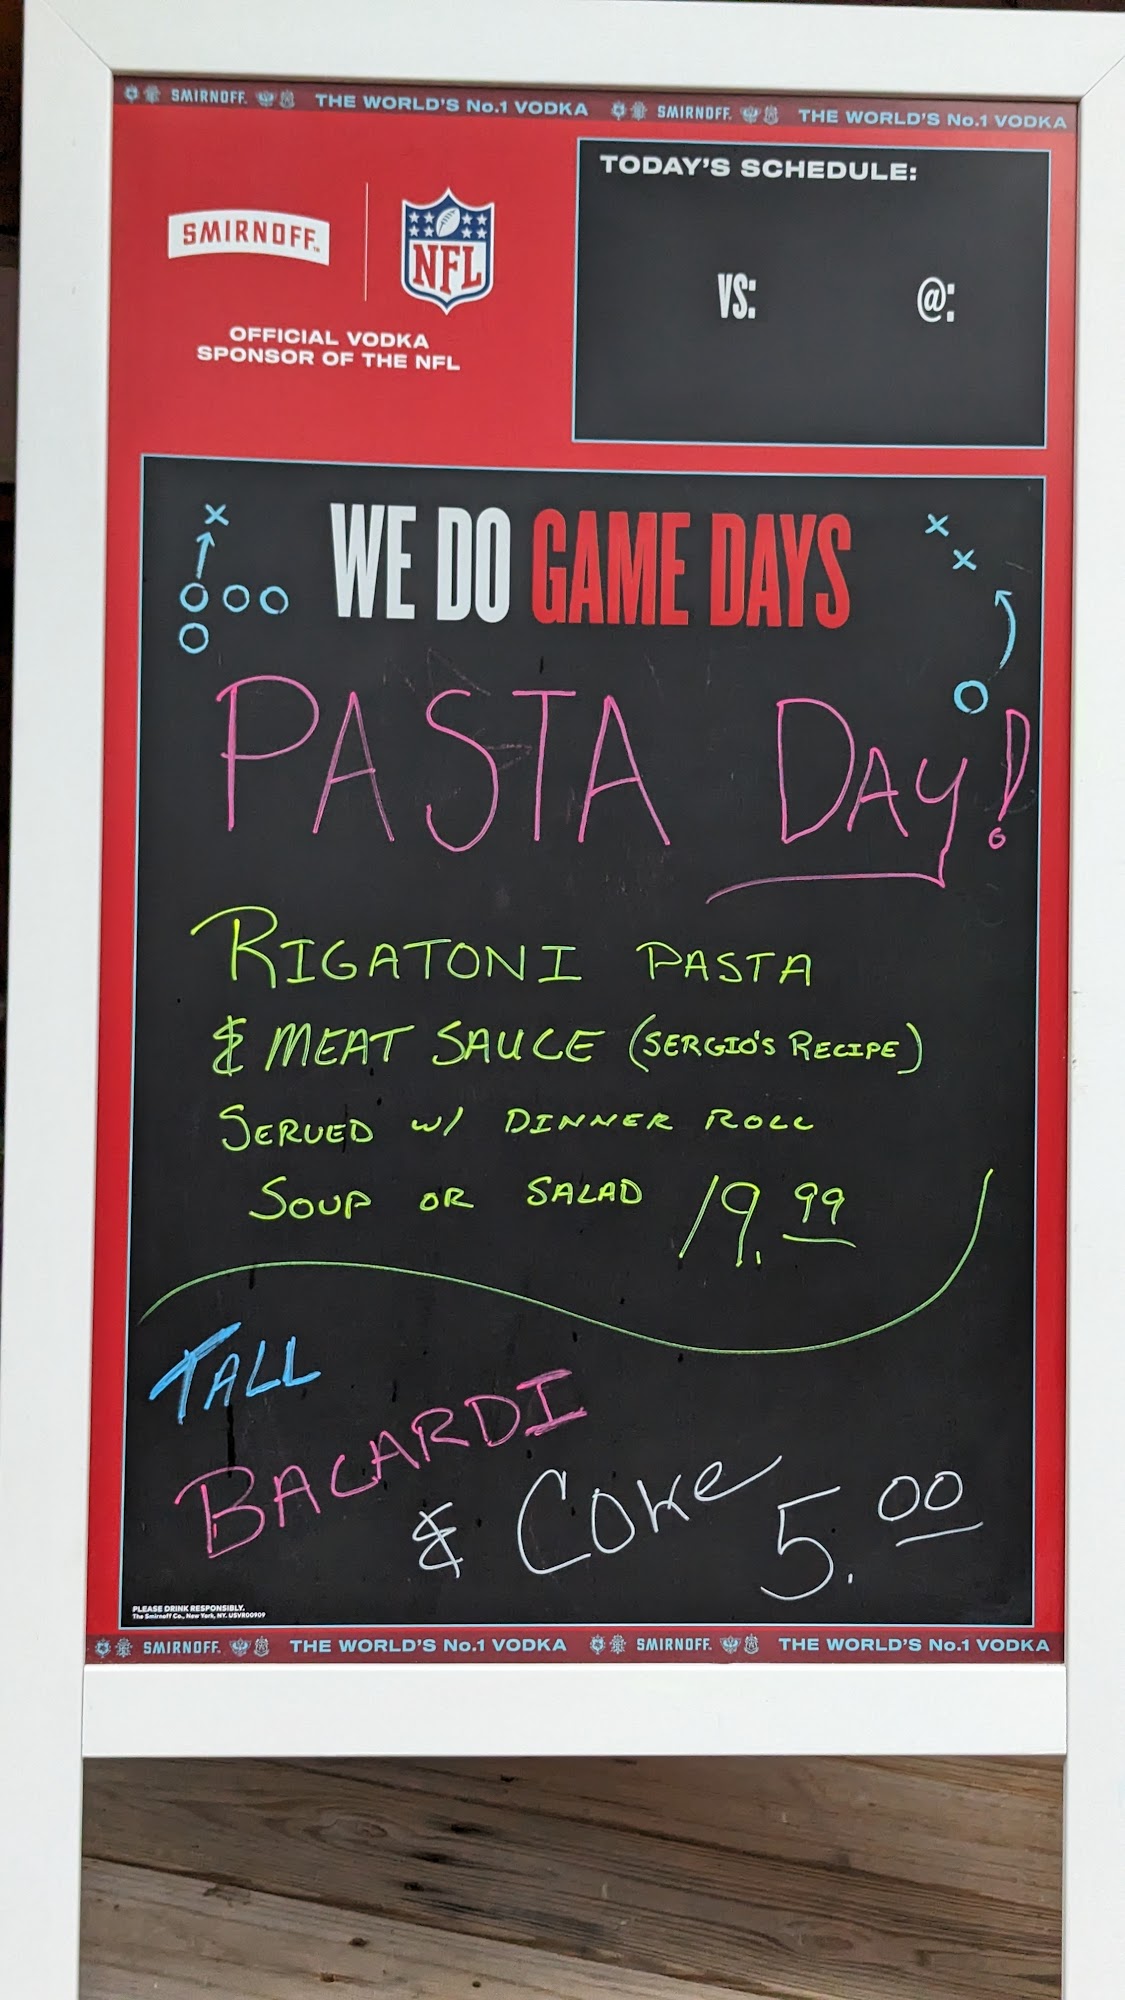 SMIRNOFF. THE WORLD'S No.1 VODKA SMIRNOFF. THE WORLD'S No.1 VODKA
SMIRNOFF™
NFL
OFFICIAL VODKA
SPONSOR OF THE NFL
TODAY'S SCHEDULE:
VS: @:
WE DO GAME DAYS
PASTA DAY!
RIGATONI PASTA
& MEAT SAUCE (SERGIO'S RECIPE)
SERVED w/ DINNER ROLL
SOUP OR SALAD 19.99
TALL
BACARDI
& Coke 5.00
PLEASE DRINK RESPONSIBLY.
The Smirnoff Co., New York, NY. USVR00909
SMIRNOFF. THE WORLD'S No.1 VODKA SMIRNOFF. THE WORLD'S No.1 VODKA